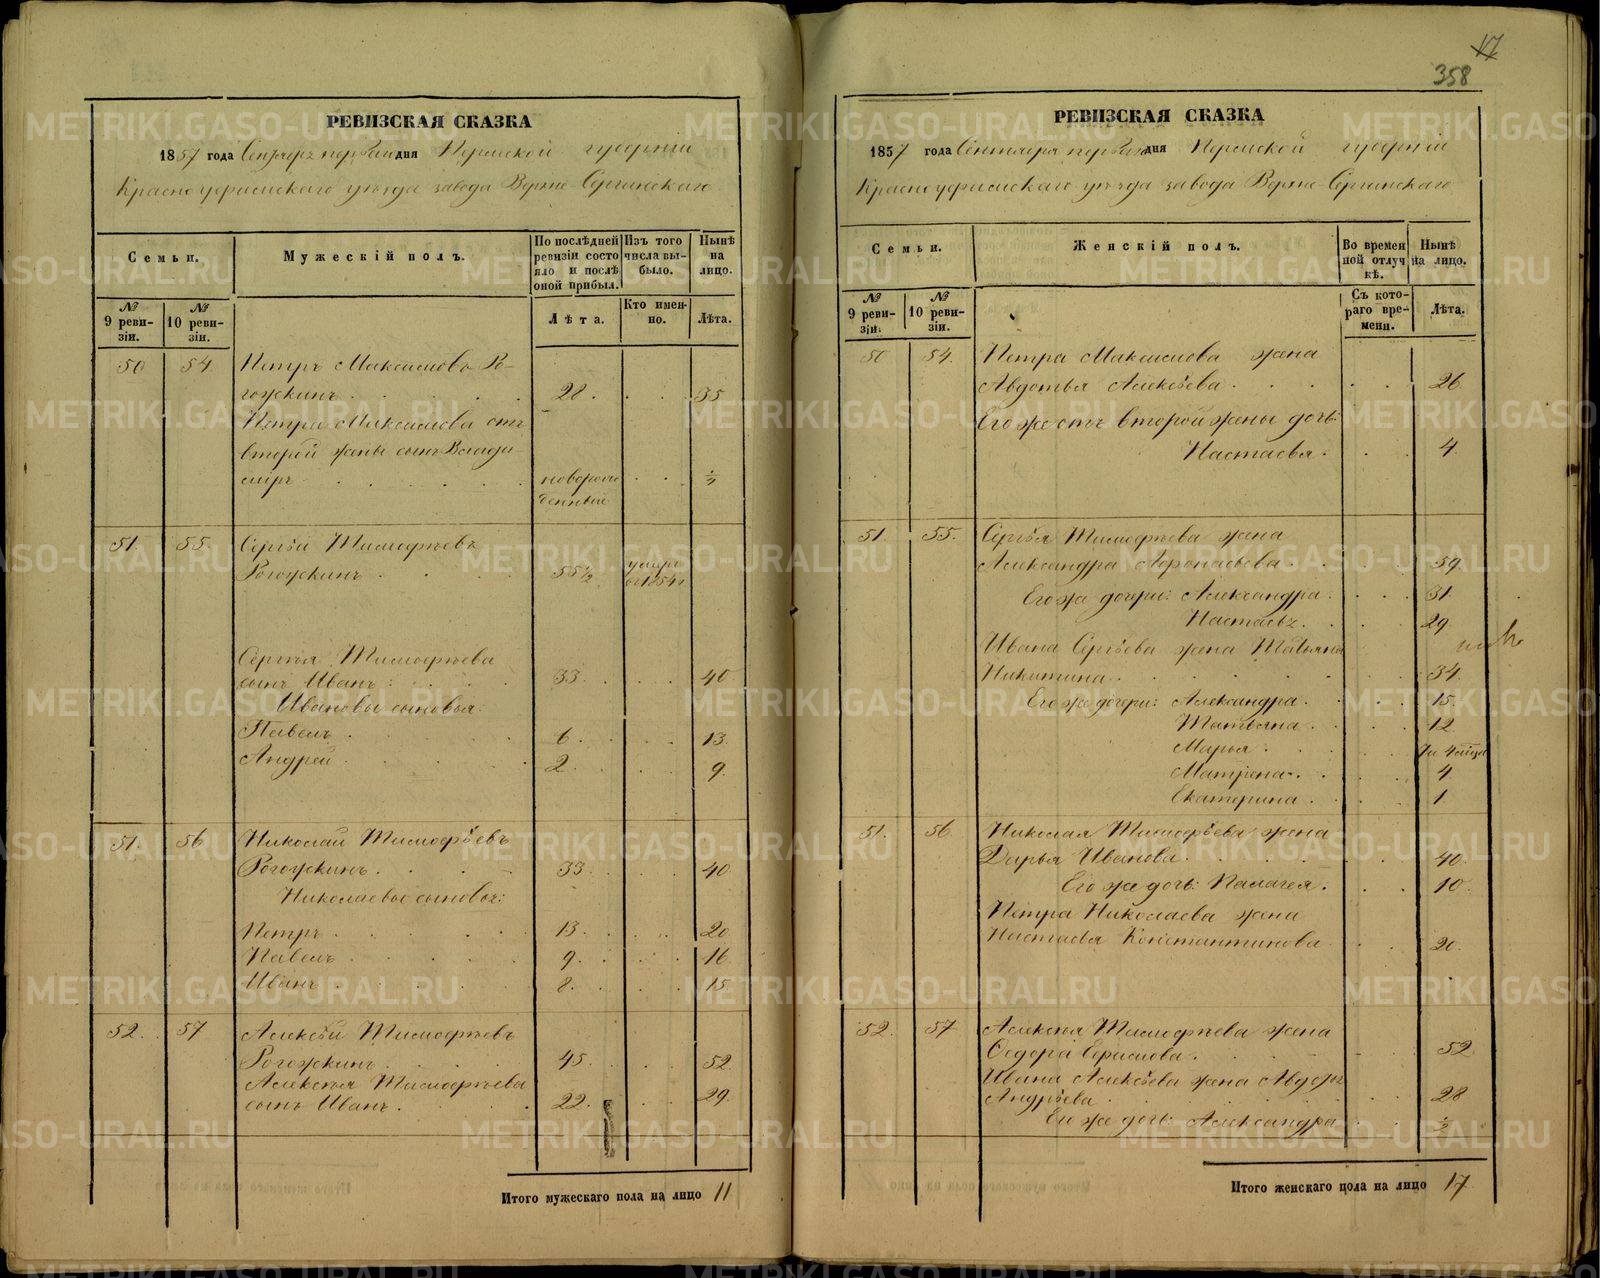 17
358
РЕВИЗСКАЯ СКАЗКА
1857 года Сентября первый дня Пермской губерніи
Красноуфимскаго уѣзда завода Верхне-Сергинскаго
Семьи.
Мужескій полъ.
По послѣдней ревизіи состояло и послѣ оной прибыл.
Изъ того числа выбыло.
Нынѣ на лицо.
№ 9 ревизіи.
№ 10 ревизіи.
Лѣта.
Кто именно.
Лѣта.
50 54 Петръ Максимовъ Ро-
гожкинъ 28. 35
Петра Максимова отъ
второй жены сынъ Влади-
міръ новорож
денный ½
51. 55. Сергѣй Тимофѣевъ
Рогожкинъ 55½ умеръ
въ 1854 г
Сергѣя Тимофѣева
сынъ Иванъ: 33. 40
Ивановы сыновья:
Павелъ 6 13
Андрей 2. 9.
51. 56 Николай Тимофѣевъ
Рогожкинъ 33. 40
Николаевы сыновья:
Петръ 13. 20
Павелъ 9. 16
Иванъ 8. 15
52. 57 Алексѣй Тимофѣевъ
Рогожкинъ 45. 52
Алексѣя Тимофѣева
сынъ Иванъ. 22. 29.
Итого мужескаго пола на лицо 11
РЕВИЗСКАЯ СКАЗКА
1857 года Сентября первый дня Пермской губерніи
Красноуфимскаго уѣзда завода Верхне-Сергинскаго
Семьи.
Женскій полъ.
Во временной отлучкѣ.
Нынѣ на лицо.
№ 9 ревизіи.
№ 10 ревизіи.
Съ котораго времени.
Лѣта.
50 54. Петра Максимова жена
Авдотья Алексѣева. 26
Его же отъ второй жены дочь:
Настасья. 4.
51. 55. Сергѣя Тимофѣева жена
Александра Афонасьева 59.
Его же дочери: Александра. 31
Настасья. 29
Ивана Сергѣева жена Татьяна
Никитина. 34.
Его же дочери: Александра. 15.
Татьяна 12
Марья
Матрена. 4
Екатерина. 1
51. 56 Николая Тимофѣева жена
Дарья Иванова. 40.
Его же дочь: Палагея. 10
Петра Николаева жена
Настасья Константинова 20.
52. 57 Алексѣя Тимофѣева жена
Федора Ефимова. 52
Ивана Алексѣева жена Авдотья
Андрѣева. 28
Его же дочь: Александра ½
Итого женскаго пола на лицо 17
METRIKI.GASO-URAL.RU